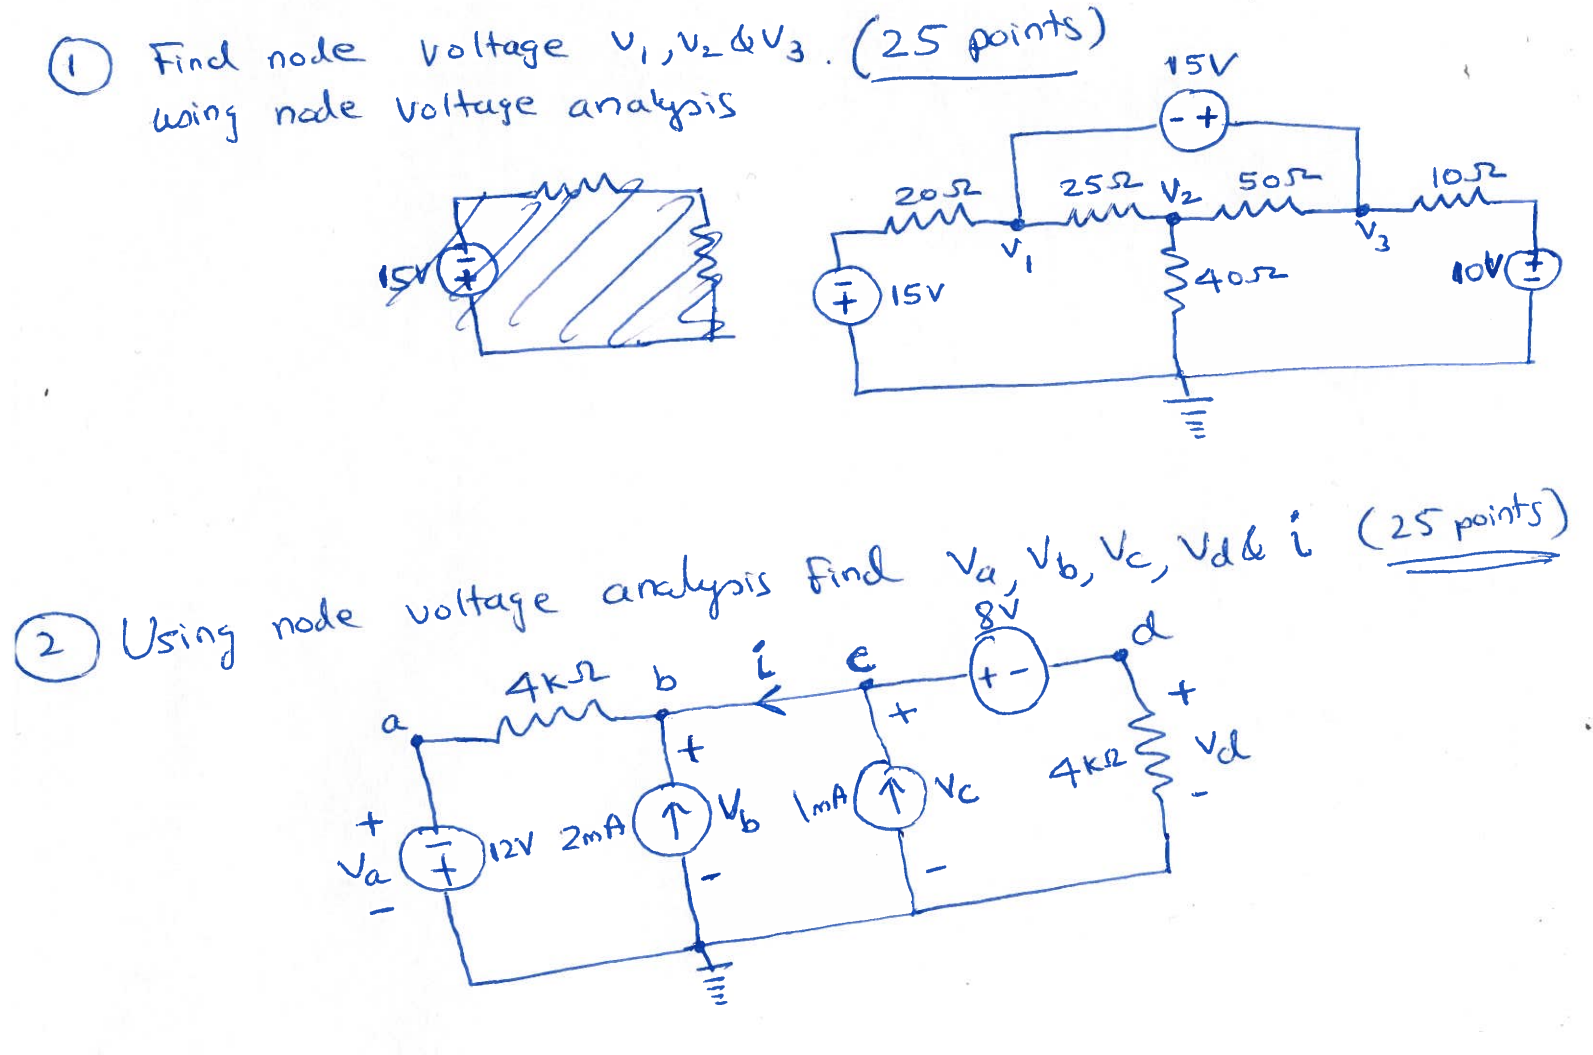 1 Find node voltage V1, V2 & V3. (25 points)
using node voltage analysis
15V
- +
20Ω 25Ω V2 50Ω 10Ω
V1 V3
15V - +
- + 15V
40Ω
10V + -
2 Using node voltage analysis find Va, Vb, Vc, Vd & i (25 points)
8V
+ -
4kΩ b i c d
a
+ Va -
- + 12V
2mA ↑ + Vb -
1mA ↑ + Vc -
4kΩ + Vd -